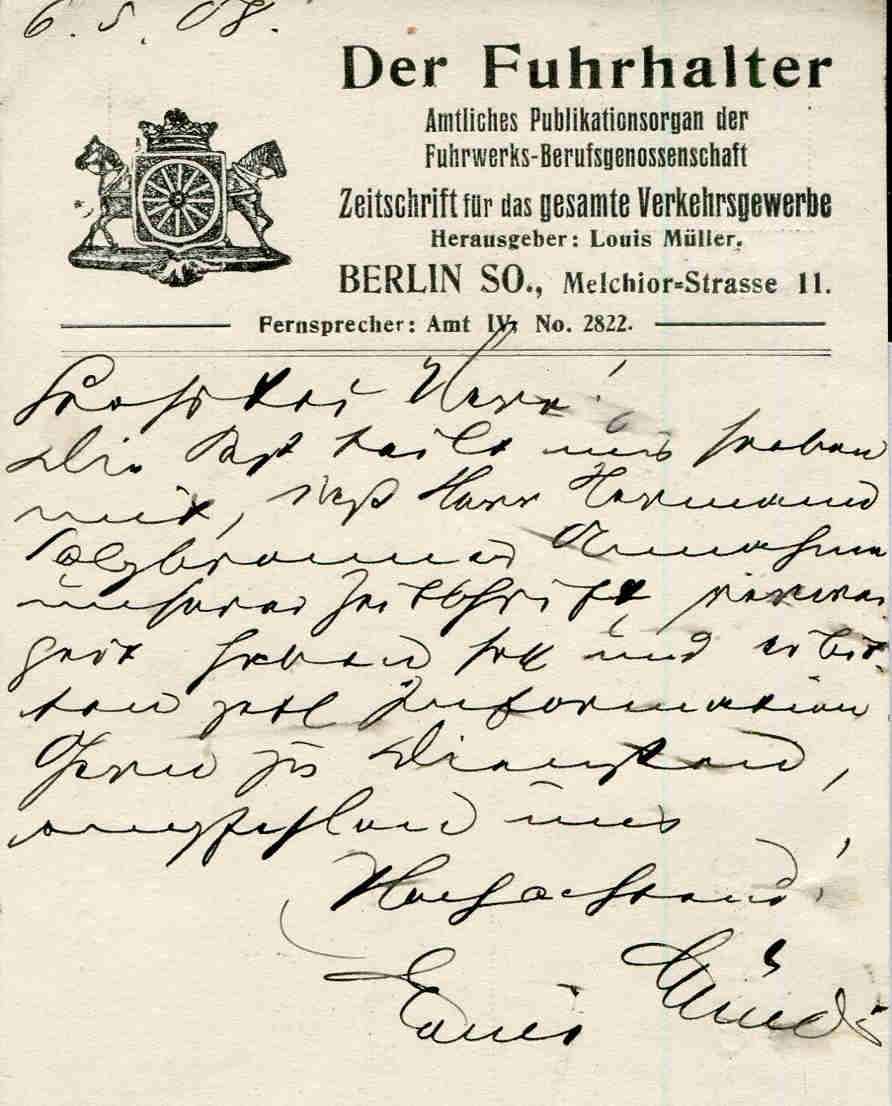 6. 5. 08.
Der Fuhrhalter
Amtliches Publikationsorgan der
Fuhrwerks-Berufsgenossenschaft
Zeitschrift für das gesamte Verkehrsgewerbe
Herausgeber: Louis Müller.
BERLIN SO., Melchior-Strasse 11.
Fernsprecher: Amt IV, No. 2822.
Herr!
Die Post teilt uns soeben
mit, daß Herr Hermann
Annahme
unserer Zeitschrift verwei
gert haben soll und erbit
ten Information
Gern zu Diensten,
empfehlen uns
Hochachtend!
Louis